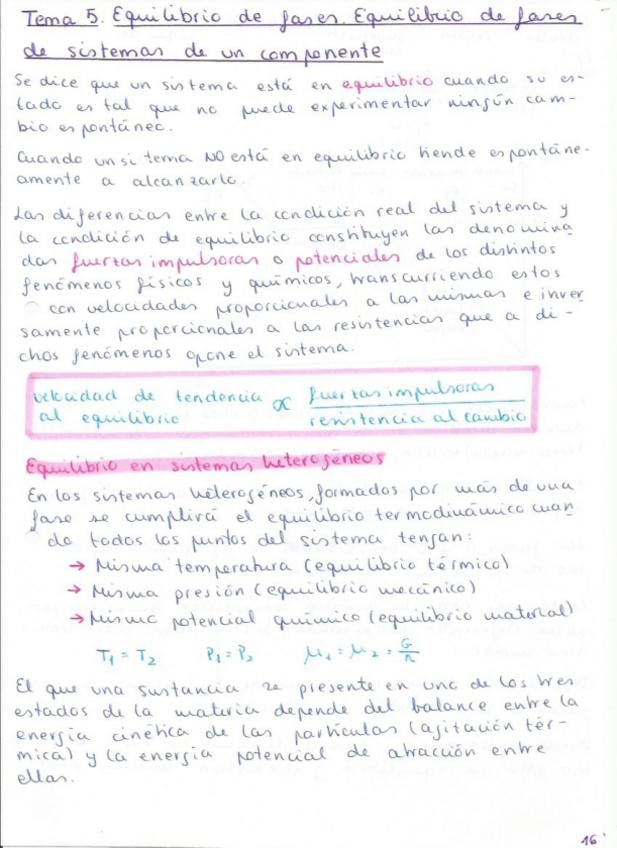 Tema 5. Equilibrio de fases. Equilibrio de fases
de sistemas de un componente
Se dice que un sistema está en equilibrio cuando su es-
tado es tal que no puede experimentar ningún cam-
bio espontáneo.
Cuando un sitema NO está en equilibrio tiende espontáne-
amente a alcanzarlo.
Las diferencias entre la condición real del sistema y
la condición de equilibrio constituyen las denomina
das fuerzas impulsoras o potenciales de los distintos
fenómenos físicos y químicos, transcurriendo estos
con velocidades proporcionales a las mismas e inver
samente proporcionales a las resistencias que a di-
chos fenómenos opone el sistema.
velocidad de tendencia al equilibrio ∝ fuerzas impulsoras / resistencia al cambio
Equilibrio en sistemas heterogéneos
En los sistemas heterogéneos, formados por más de una
fase se cumplirá el equilibrio termodinámico cuan
do todos los puntos del sistema tengan:
→ Misma temperatura (equilibrio térmico)
→ Misma presión (equilibrio mecánico)
→ Mismo potencial químico (equilibrio material)
T₁ = T₂ P₁ = P₂ μ₁ = μ₂ = G/n
El que una sustancia se presente en uno de los tres
estados de la materia depende del balance entre la
energía cinética de las partículas (agitación tér-
mica) y la energía potencial de atracción entre
ellas.
16